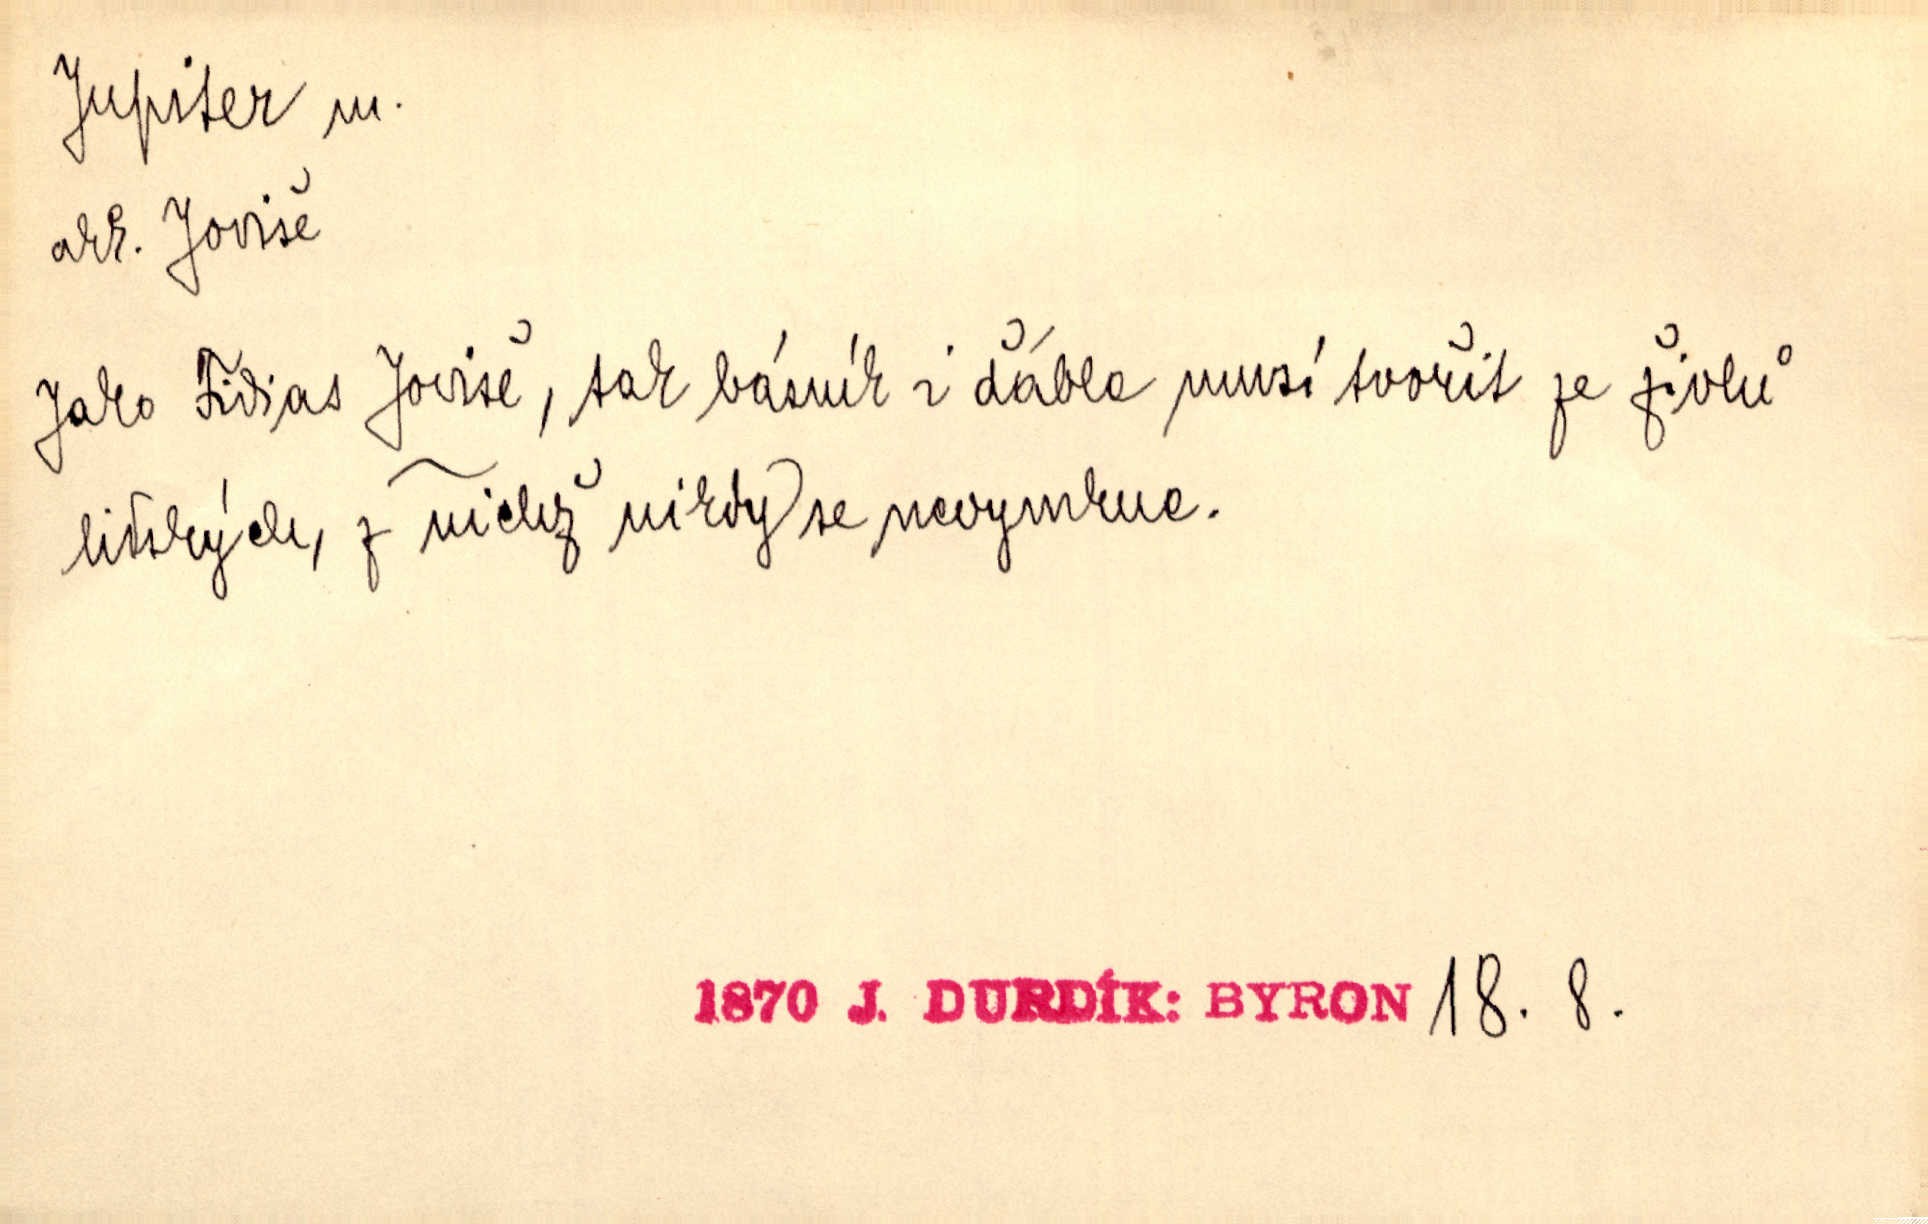 Jupiter m.
akk. Joviše
Jako Fidias Joviše, tak básník i ďábla musí tvořit ze živlů
lidských, z nichž nikdy se nevymkne.
1870 J. DURDÍK: BYRON 18. 8.